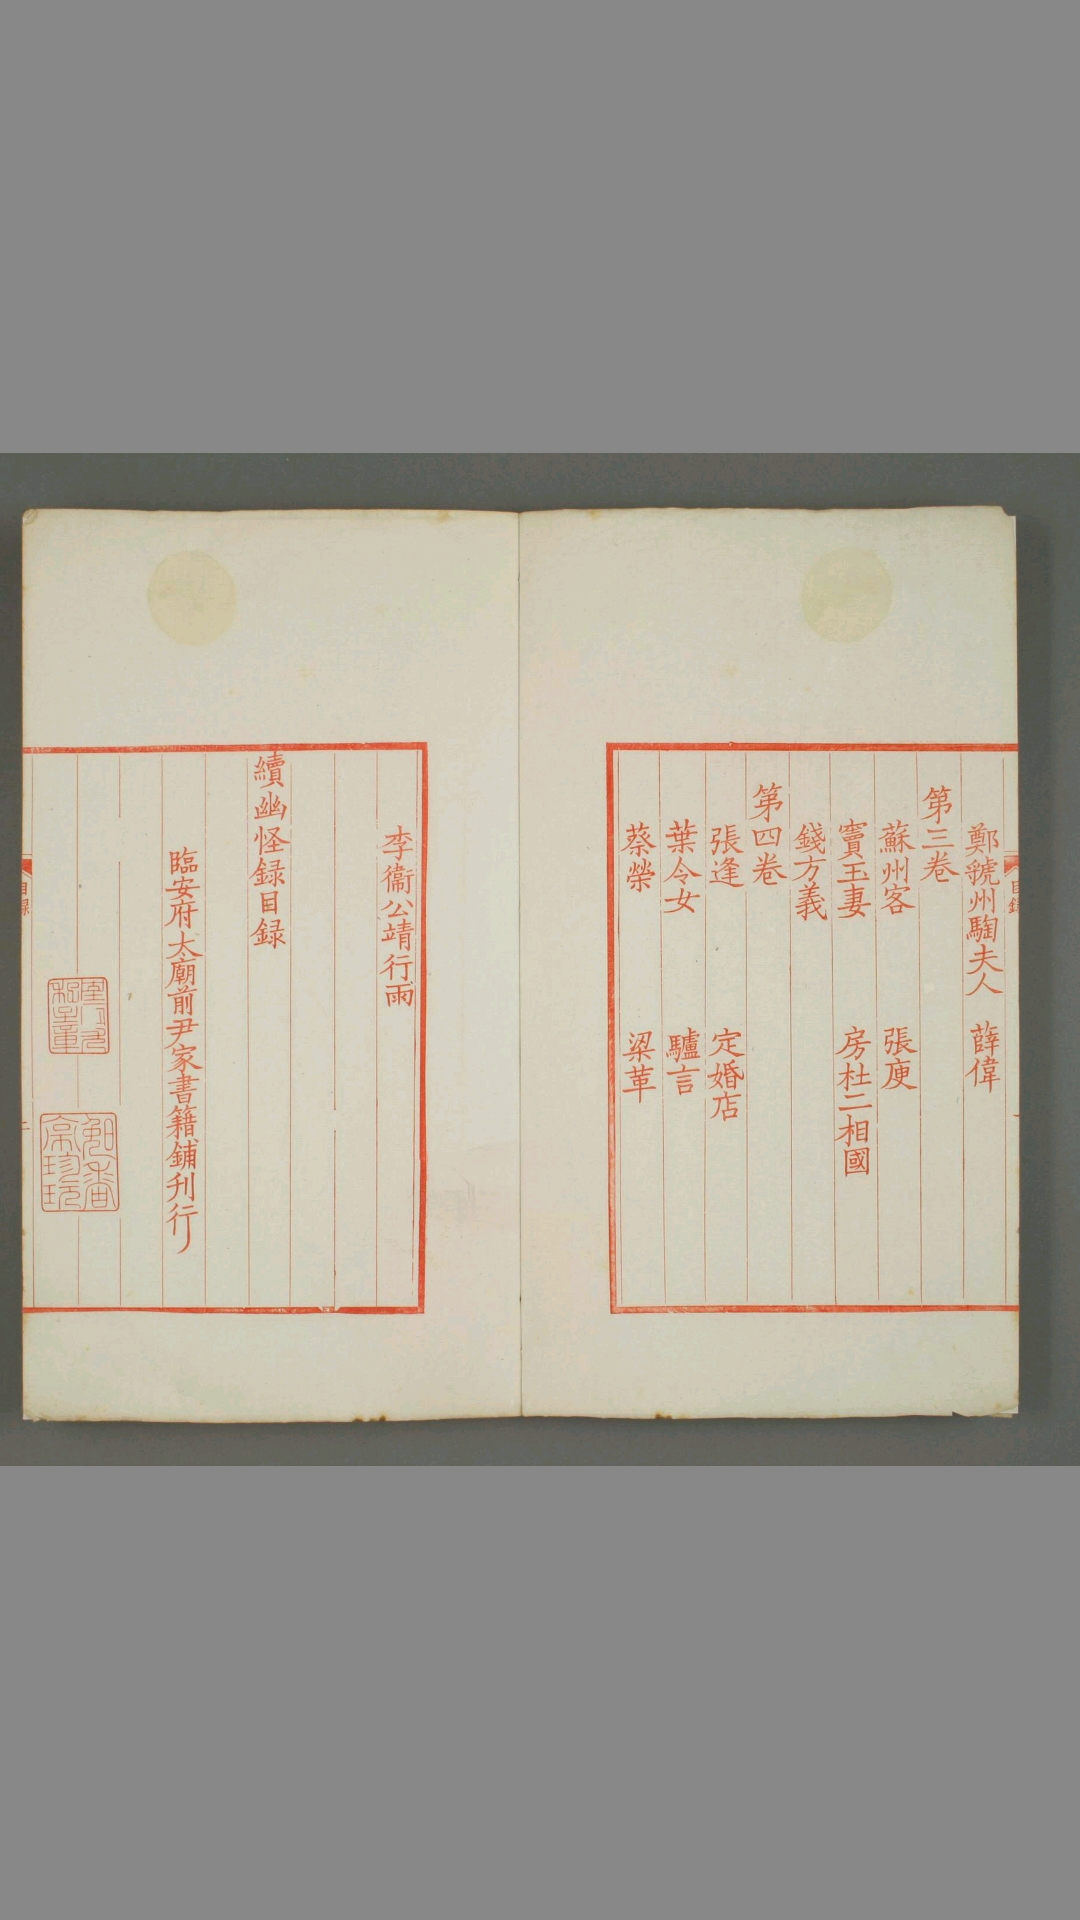 鄭虢州騊夫人　薛偉
第三卷
蘇州客　張庾
竇玉妻　房杜二相國
錢方義
第四卷
張逢　定婚店
葉令女　驢言
蔡榮　梁革
李衞公靖行雨
續幽怪録目録
臨安府太廟前尹家書籍鋪刋行
目録
目録